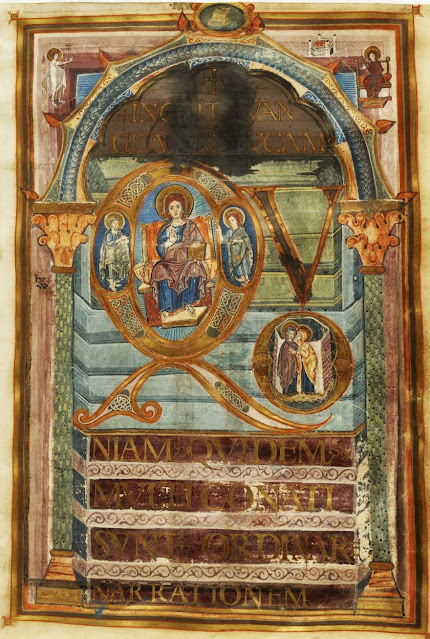 INCIPIT EVAN
LVCAM
QV
O
NIAM QVIDEM
MVLTI CONATI
SVNT ORDINARE
NARRATIONEM